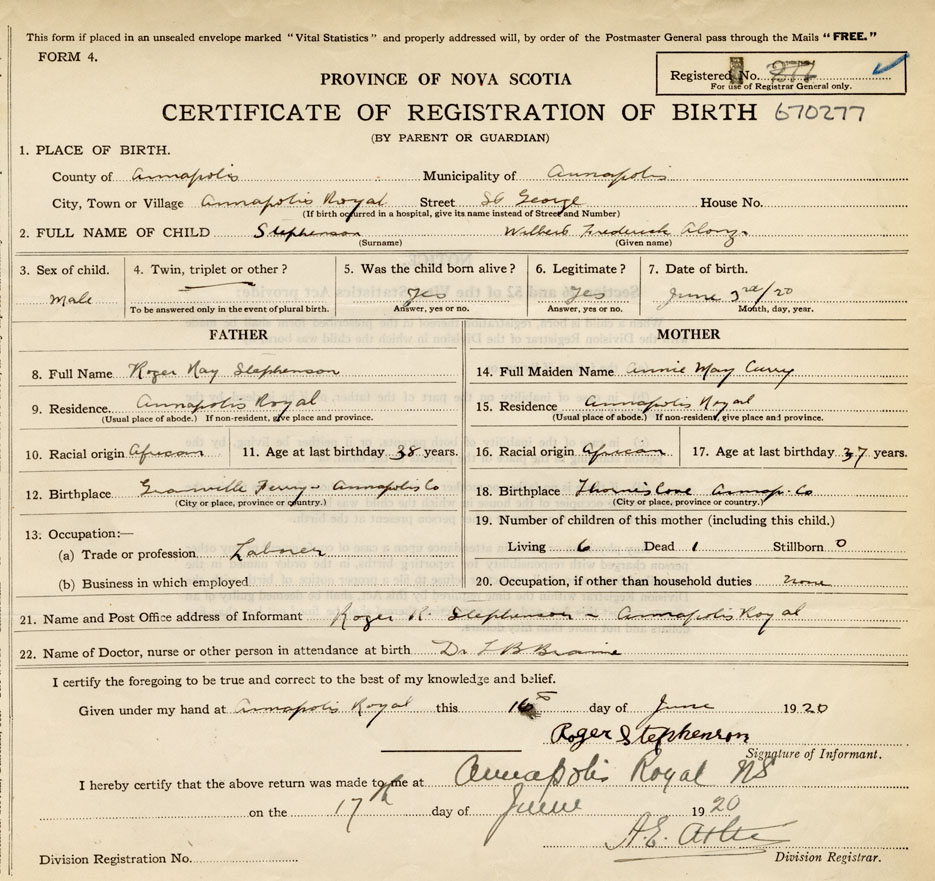 This form if placed in an unsealed envelope marked "Vital Statistics" and properly addressed will, by order of the Postmaster General pass through the Mails "FREE."
FORM 4.
Registered No. 277
For use of Registrar General only.
PROVINCE OF NOVA SCOTIA
CERTIFICATE OF REGISTRATION OF BIRTH 670277
(BY PARENT OR GUARDIAN)
1. PLACE OF BIRTH.
County of Annapolis Municipality of Annapolis
City, Town or Village Annapolis Royal Street St George House No.
(If birth occurred in a hospital, give its name instead of Street and Number)
2. FULL NAME OF CHILD Stephenson Wilbert Frederick Alonzo
(Surname) (Given name)
3. Sex of child. 4. Twin, triplet or other? 5. Was the child born alive? 6. Legitimate? 7. Date of birth.
Male Yes Yes June 3rd/20
To be answered only in the event of plural birth. Answer, yes or no. Answer, yes or no. Month, day, year.
FATHER MOTHER
8. Full Name Roger Ray Stephenson 14. Full Maiden Name Annie May Curry
9. Residence. Annapolis Royal 15. Residence Annapolis Royal
(Usual place of abode.) If non-resident, give place and province. (Usual place of abode.) If non-resident, give place and province.
10. Racial origin African 11. Age at last birthday 38 years. 16. Racial origin African 17. Age at last birthday 37 years.
12. Birthplace Granville Ferry Annapolis Co 18. Birthplace Annap. Co
(City or place, province or country.) (City or place, province or country.)
13. Occupation:— 19. Number of children of this mother (including this child.)
(a) Trade or profession. Laborer Living 6 Dead 1 Stillborn 0
(b) Business in which employed 20. Occupation, if other than household duties none
21. Name and Post Office address of Informant Roger R. Stephenson - Annapolis Royal
22. Name of Doctor, nurse or other person in attendance at birth Dr L B Braine
I certify the foregoing to be true and correct to the best of my knowledge and belief.
Given under my hand at Annapolis Royal this 16th day of June 1920
Roger Stephenson
Signature of Informant.
I hereby certify that the above return was made to me at Annapolis Royal NS
on the 17th day of June 1920
A.E.
Division Registration No. Division Registrar.